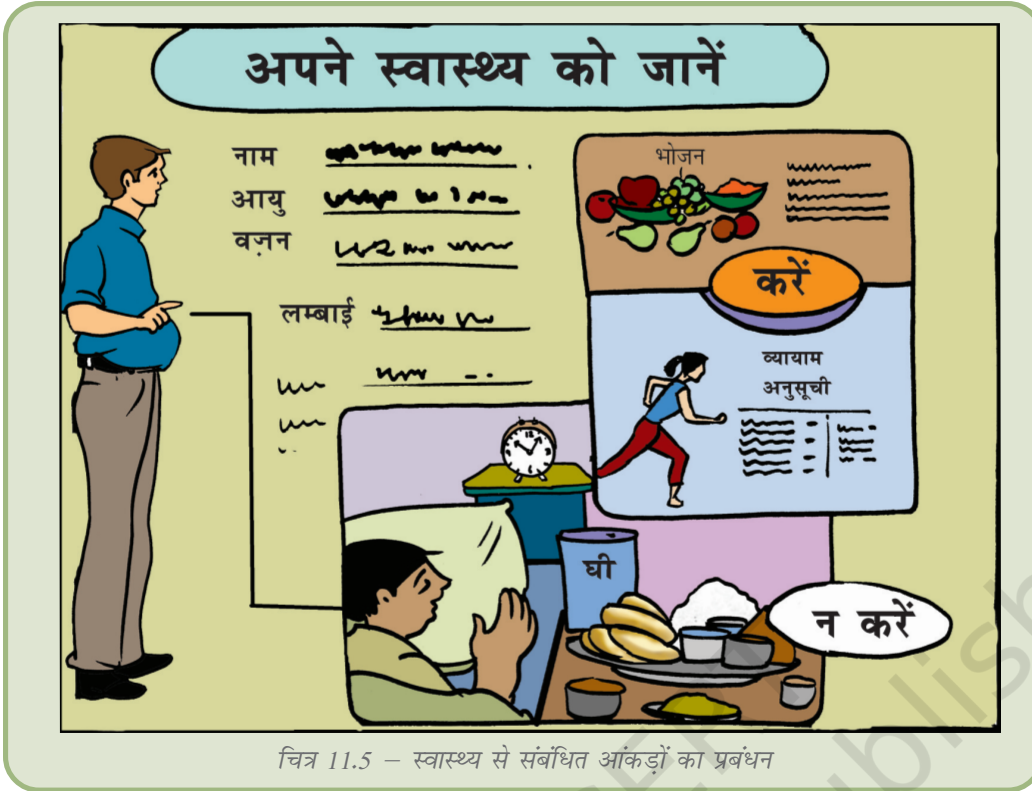 अपने स्वास्थ्य को जानें
नाम
आयु
वज़न
लम्बाई
भोजन
करें
व्यायाम
अनुसूची
घी
न करें
चित्र 11.5 – स्वास्थ्य से संबंधित आंकड़ों का प्रबंधन